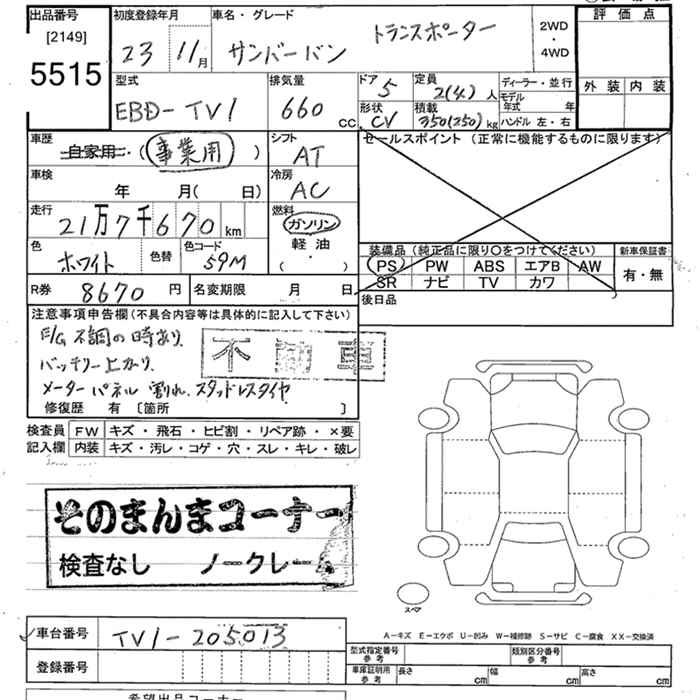 出品番号
[2149]
5515
初度登録年月
23 11月
車名・グレード
サンバーバン トランスポーター
2WD
・
4WD
評価点
外装 内装
型式
EBD-TV1
排気量
660 cc
ドア 5
定員 2(4)人
形状 CV
積載 350(250)kg
ディーラー・並行
モデル年式 年
ハンドル 左・右
車歴
自家用・(事業用)
シフト
AT
セールスポイント(正常に機能するものに限ります)
車検
年 月( 日)
冷房
AC
走行
21万7千670km
燃料
ガソリン
軽油
( )
色
ホワイト
色替
色コード
59M
装備品(純正品に限り〇をつけてください)
PS PW ABS エアB AW
SR ナビ TV カワ
新車保証書
有・無
R券 8670円
名変期限 月 日
後日品
注意事項申告欄(不具合内容等は具体的に記入して下さい)
E/G 不調の時あり
バッテリー上がり
メーターパネル 割れ、スタッドレスタイヤ
修復歴 有 〔箇所 〕
検査員記入欄
FW キズ・飛石・ヒビ割・リペア跡・×要
内装 キズ・汚レ・コゲ・穴・スレ・キレ・破レ
そのまんまコーナー
検査なし ノークレーム
スペア
A-キズ E-エクボ U-凹み W-補修跡 S-サビ C-腐食 XX-交換済
車台番号 TV1-205013
登録番号
型式指定番号 参考
類別区分番号 参考
車庫証明用 参考
長さ cm 幅 cm 高さ cm
希望出品コーナー